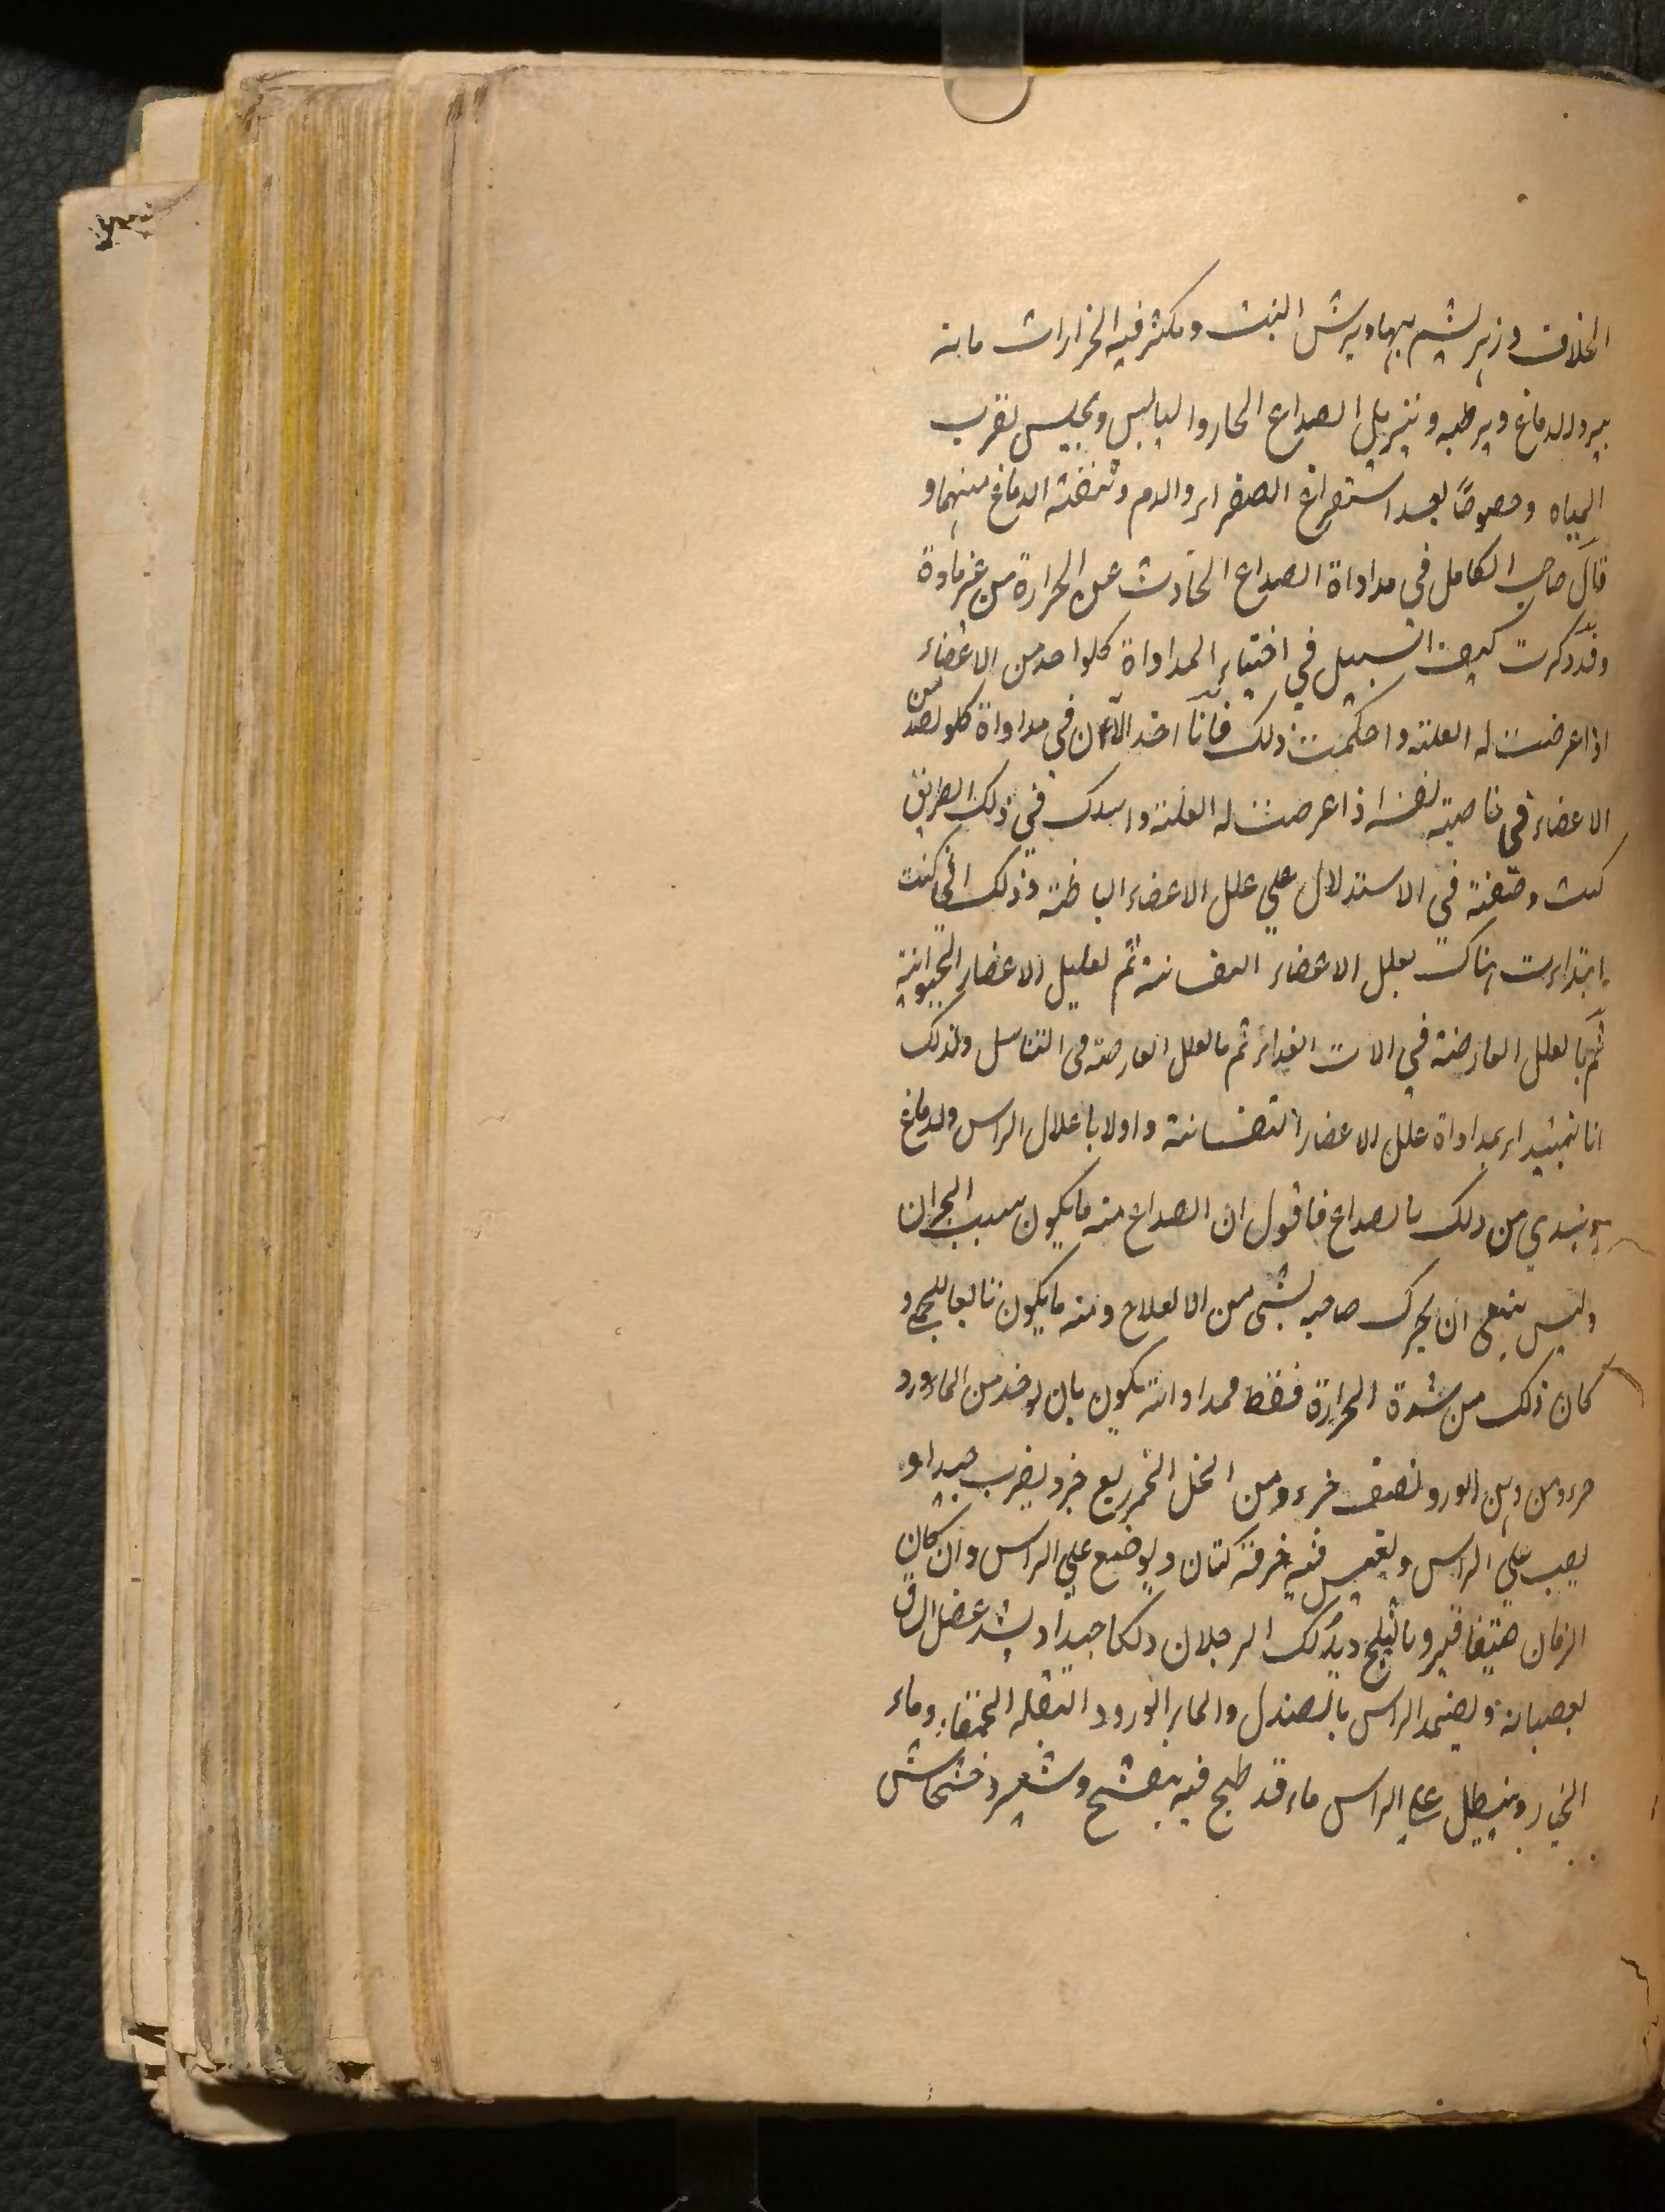 الخلاف وزهر يشم بهما ويرش البيت ويكثر فيه الخزارات مانه
يبرد الدماغ ويرطبه ويزيل الصداع الحار واليابس ويجلس بقرب
المياه وخصوصًا بعد استفراغ الصفراء والدم وتنقية الدماغ منهما و
قال صاحب الكامل في مداواة الصداع الحادث عن الحرارة من غير مادة
وقد ذكرت كيف السبيل في اختيار المداواة كلواحد من الاعضاء
اذا عرضت له العلة واحكمت ذلك فانا اخذ الآن في مداواة كلواحد من
الاعضاء في خاصية نفسه اذا عرضت له العلة واسلك في ذلك الطريق
كنت وصفته في الاستدلال علي علل الاعضاء الباطنة وذلك اني كنت
ابتداءت هناك بعلل الاعضاء النفسانية ثم لعليل الاعضاء الحيوانية
ثم بالعلل العارضة في الات الغداء ثم بالعلل العارضة في التناسل ولذلك
انا نبتداء بمداواة علل الاعضاء النفسانية واولا باعلال الراس والدماغ
ونبتدي من ذلك بالصداع فاقول ان الصداع منه مايكون سبب البحران
وليس ينبغي ان يحرك صاحبه بشي من الا لعلاج ومنه مايكون تابعا للحمي و
كان ذلك من شدة الحرارة فقط فمداواته يكون بان يوخذ من الماورد
جزء ومن دهن الورد نصف جزء ومن الخل الخمر ربع جزء ويضرب جيدا و
يصب علي الراس ويغمس فيه خرقة كتان ويوضع علي الراس وان كان
الزمان صيفا فيبرد بالثلج ويدلك الرجلان دلكا جيدا ويشد عضل الساق
بعصبانه ويضمد الراس بالصندل والماء الورد و البقله الحمقاء وماء
الخيار وينطل علي الراس ماء قد طبخ فيه بنفشج وشعير وخشخاش